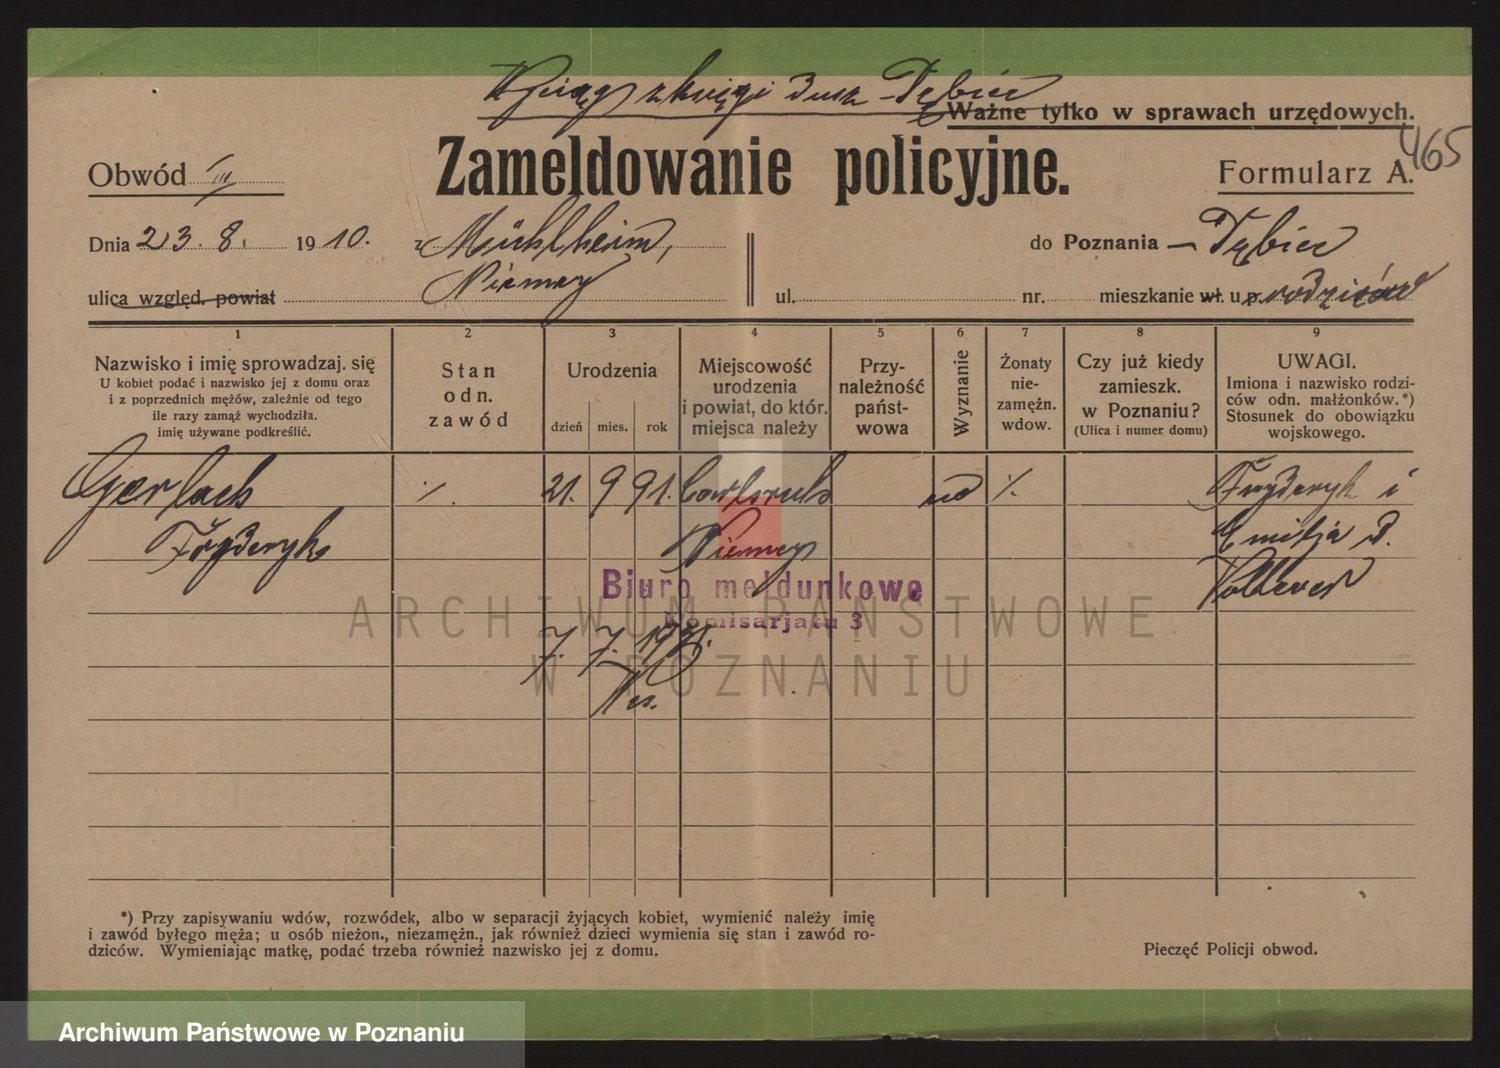 Wyciąg z księgi dusz – Dębiec
Ważne tylko w sprawach urzędowych.
Zameldowanie policyjne.
465
Obwód III
Formularz A.
Dnia 23. 8. 1910. z Mühlheim,
do Poznania – Dębiec
Niemcy
ulica względ. powiat
ul. nr. mieszkanie wł. u p. rodziców
1 2 3 4 5 6 7 8 9
Nazwisko i imię sprowadzaj. się
U kobiet podać i nazwisko jej z domu oraz
i z poprzednich mężów, zależnie od tego
ile razy zamąż wychodziła.
imię używane podkreślić.
Stan
odn.
zawód
Urodzenia
dzień mies. rok
Miejscowość
urodzenia
i powiat, do któr.
miejsca należy
Przy-
należność
państ-
wowa
Wyznanie
Żonaty
nie-
zamężn.
wdow.
Czy już kiedy
zamieszk.
w Poznaniu?
(Ulica i numer domu)
UWAGI.
Imiona i nazwisko rodzi-
ców odn. małżonków.*)
Stosunek do obowiązku
wojskowego.
Gerlach ·/. 21. 9 91. ·/. Fryderyk i
Fryderyk Niemcy Emilja d.
Biuro meldunkowe
Komisarjatu 3
7. 7. 193
ARCHIWUM PAŃSTWOWE
W POZNANIU
*) Przy zapisywaniu wdów, rozwódek, albo w separacji żyjących kobiet, wymienić należy imię
i zawód byłego męża; u osób nieżon., niezamężn., jak również dzieci wymienia się stan i zawód ro-
dziców. Wymieniając matkę, podać trzeba również nazwisko jej z domu.
Pieczęć Policji obwod.
Archiwum Państwowe w Poznaniu